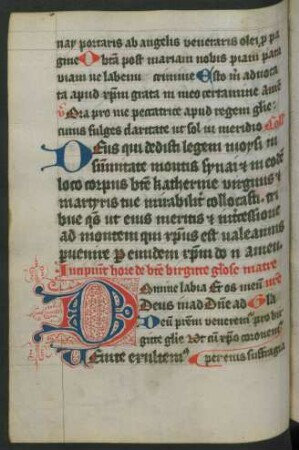 nay portaris ab angelis veneraris olei, p pa
gine O bt̄m post mariam nobis piam para
viam ne labemur crimine Esto m̄ aduoca
ta apud xp̄m grata in meo certamine amē
℣ Ora pro me peccatrice apud regem glie
cuius fulges claritate ut sol in meridio Coll'
Deus qui dedisti legem moysi in
sūmitate montis synai & in eodē
loco corpus bt̄e katherine virginis &
martyris tue mirabilit̄ collocasti. tri
bue qs̄ ut eius meritis & int̄cessione
ad montem qui xp̄us est valeamus
puenire P eundem xp̄m do n amen.
Incipiūt hore de bt̄e virgine gl'ose matre
Domine labia Et os meū
Deus in ad Dn̄e ad Gl'a
Deū prēm veneremr̄ pro vir
gine glie
Uenite exultemꝰ P erenis suffragia